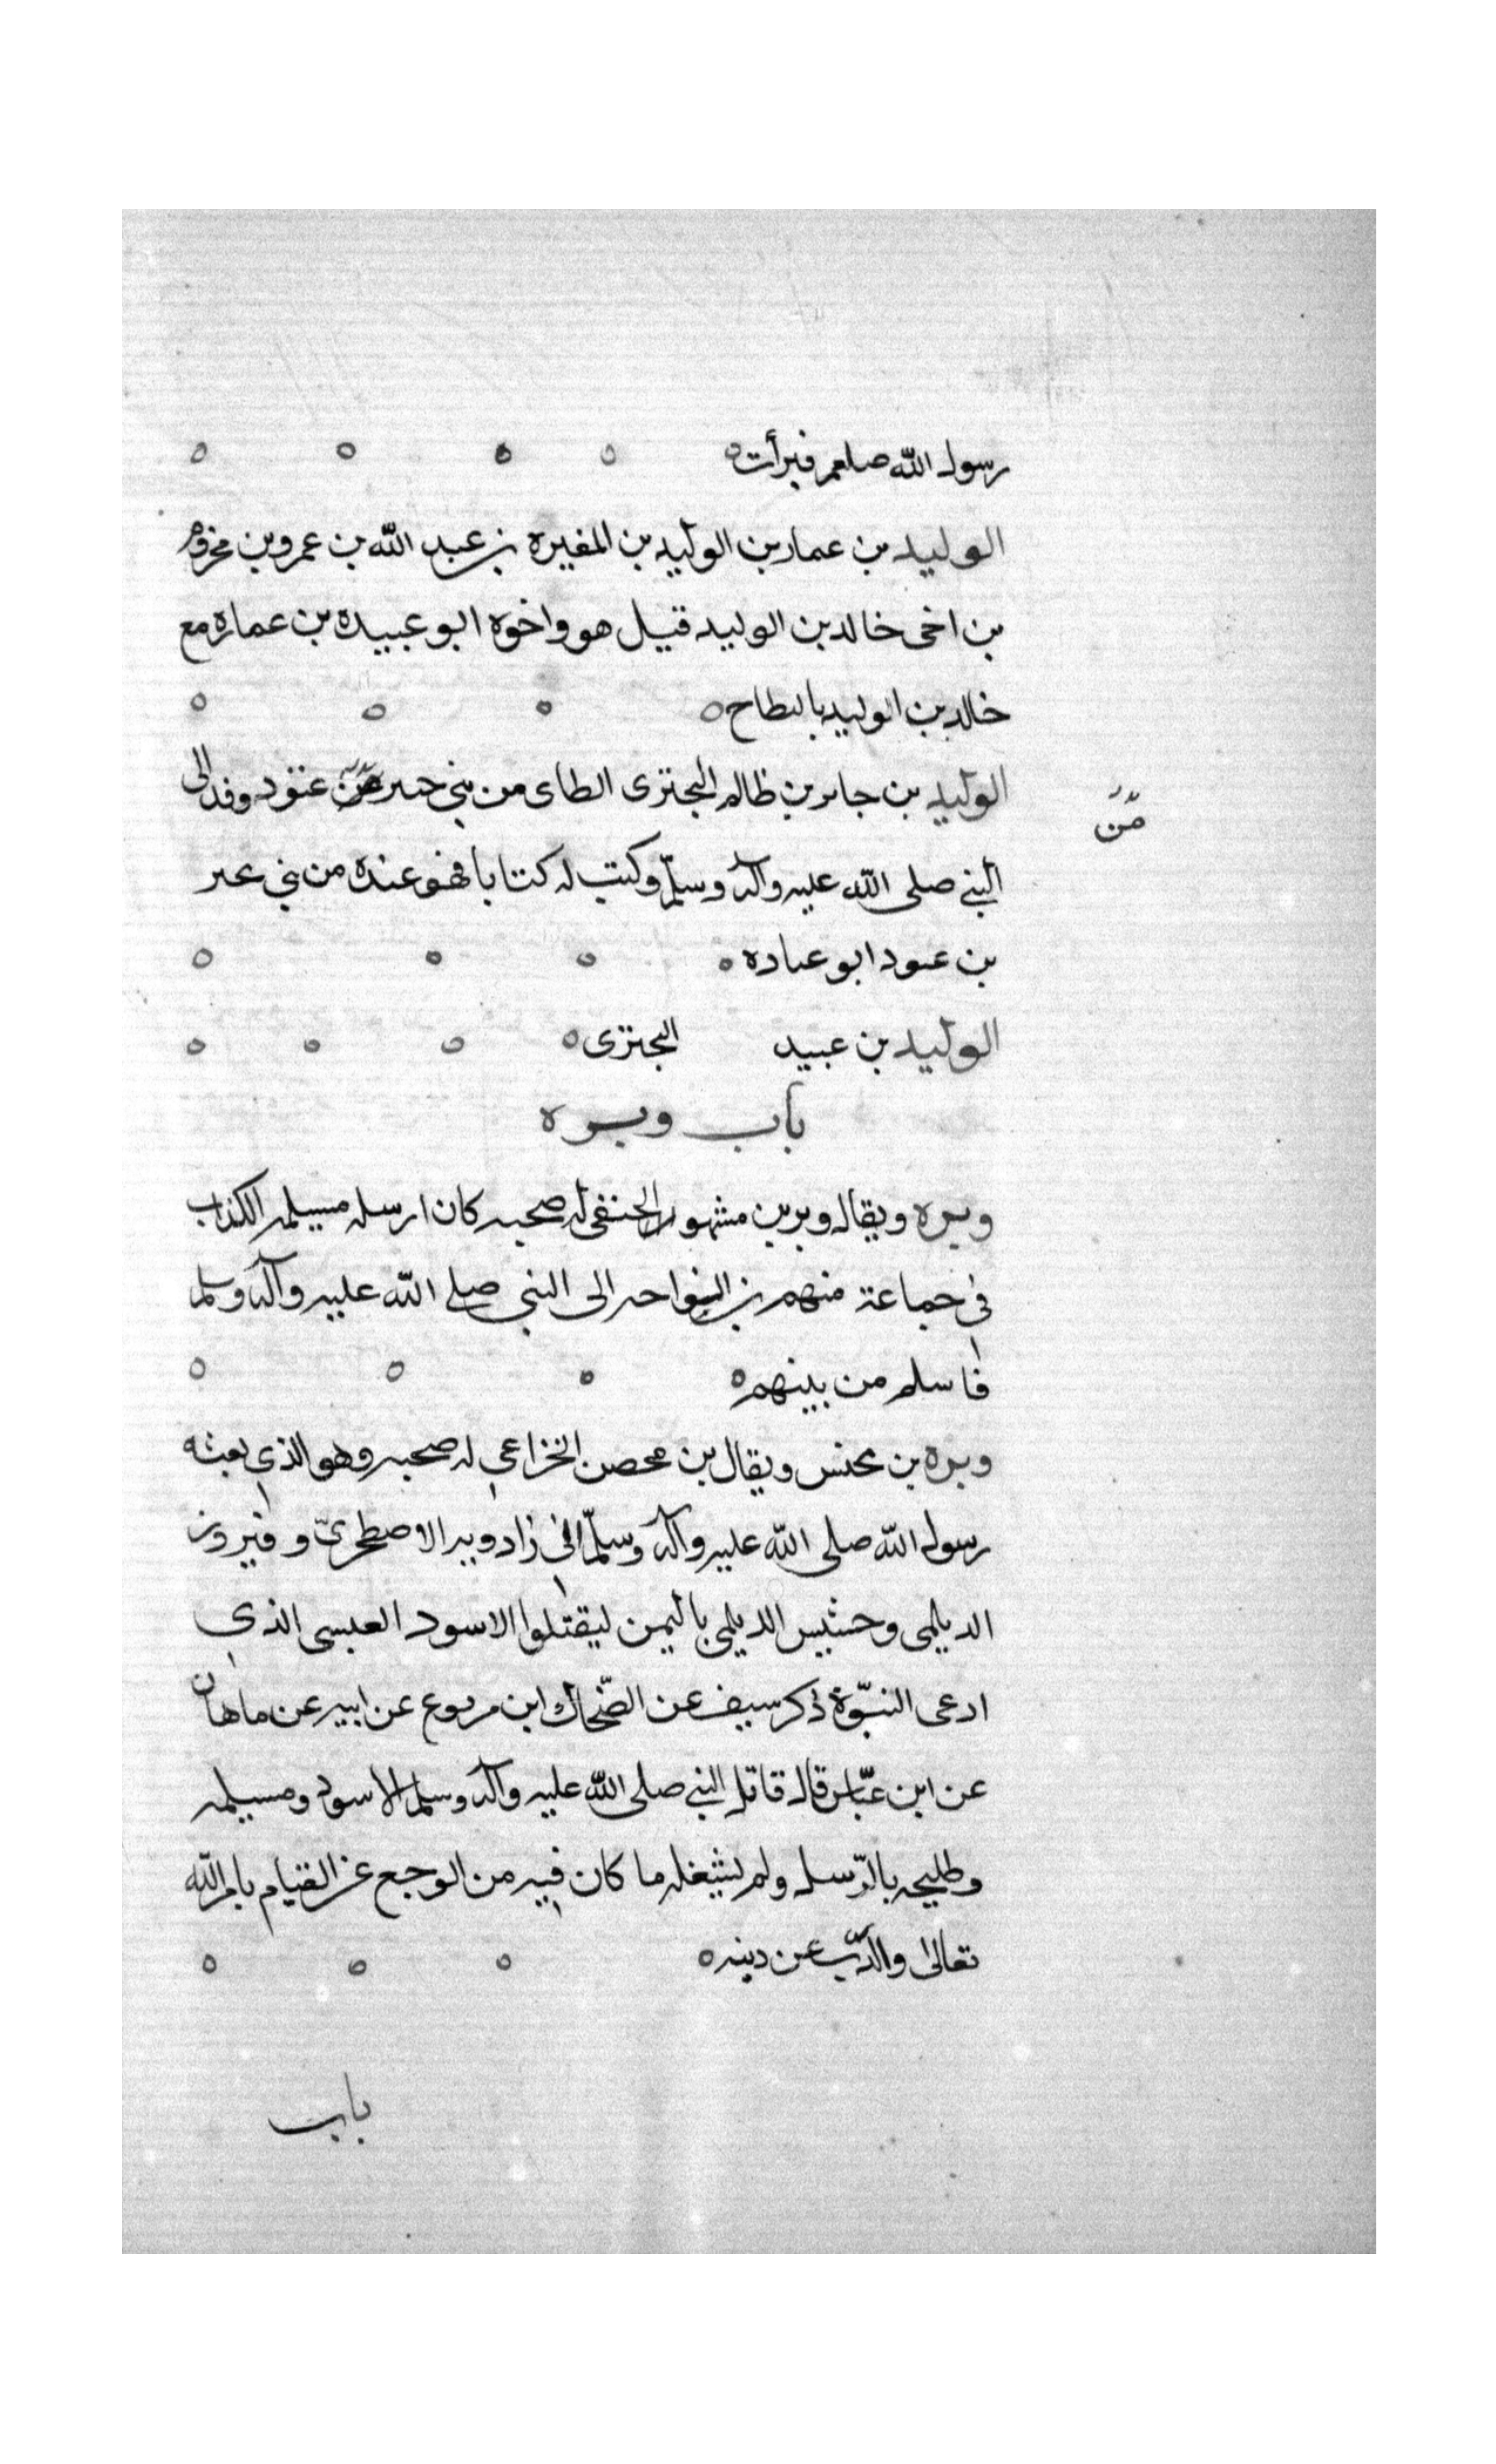 رسول الله صلعم فبرأت
الوليد بن عمار بن الوليد بن المغيره بن عبد الله بن عمرو بن مخزوم
بن اخى خالد بن الوليد قتيل هو واخوه ابو عبيدة بن عماره مع
خالد بن الوليد بالبطاح
الوليد بن جابر بن ظالم البحترى الطاى من بني عنود وفد الى
من
النبي صلى الله عليه وآله وسلم وكتب له كتابا فهو عنده من بني
بن عبود ابو عباده
الوليد بن عبيد البحترى
باب وبره
وبره ويقال وبر بن مشهور الحنفي له صحبه كان ارسله مسيلمه الكذاب
في جماعة منهم بن النواحه الى النبي صلى الله عليه وآله وسلم
فاسلم من بينهم
وبره بن يحنس ويقال بن محصن الخزاعي له صحبه وهو الذي بعثه
رسول الله صلى الله عليه وآله وسلم الى زادويه الاصطخري وفيروز
الديلمي وحشيس الديلمي باليمن ليقتلوا الاسود العبسى الذي
ادعى النبوة ذكر سيف عن الضحاك ابن مربوع عن ابيه عن ماهان
عن ابن عباس قال قاتل النبي صلى الله عليه وآله وسلم الاسود ومسيلمه
وطليحه بالرسل ولم يشغله ما كان فيه من الوجع عن القيام بامر الله
تعالى والذب عن دينه
باب